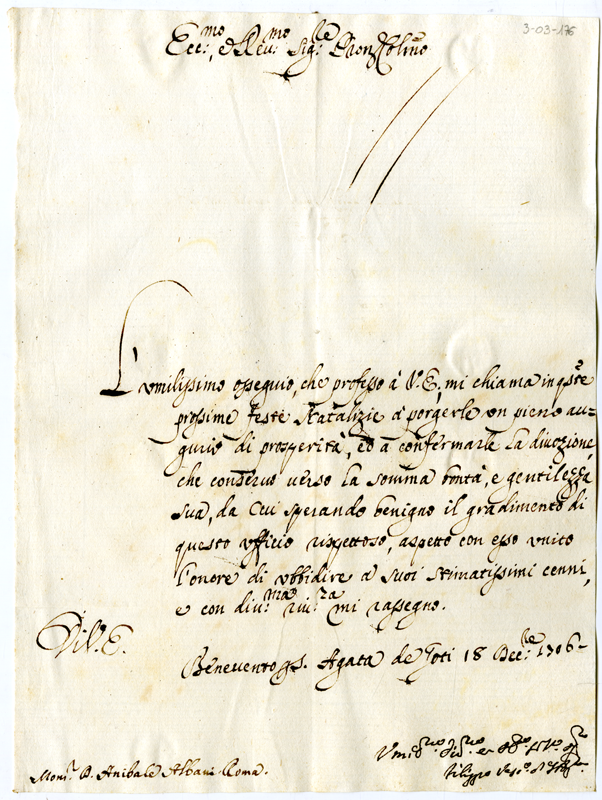 3-03-176
Ecc:mo, e Rev:mo Sig:re Pron Colmo
L'umilissimo ossequio, che professo à V. E., mi chiama in qste
prossime Feste Natalizie à porgerle un pieno au=
gurio di prosperità, ed à confermarle la divozione,
che conservo verso la somma bontà, e gentilezza
sua, da cui sperando benigno il gradimento di
questo ufficio rispettoso, aspetto con esso unito
l'onore di ubbidire a suoi stimatissimi cenni,
e con div:ma riv:za mi rassegno.
Di V. E.
Benevento p S. Agata de Goti 18 Dce:bre 1706
Filippo
Mons.r D. Anibale Albani Roma.